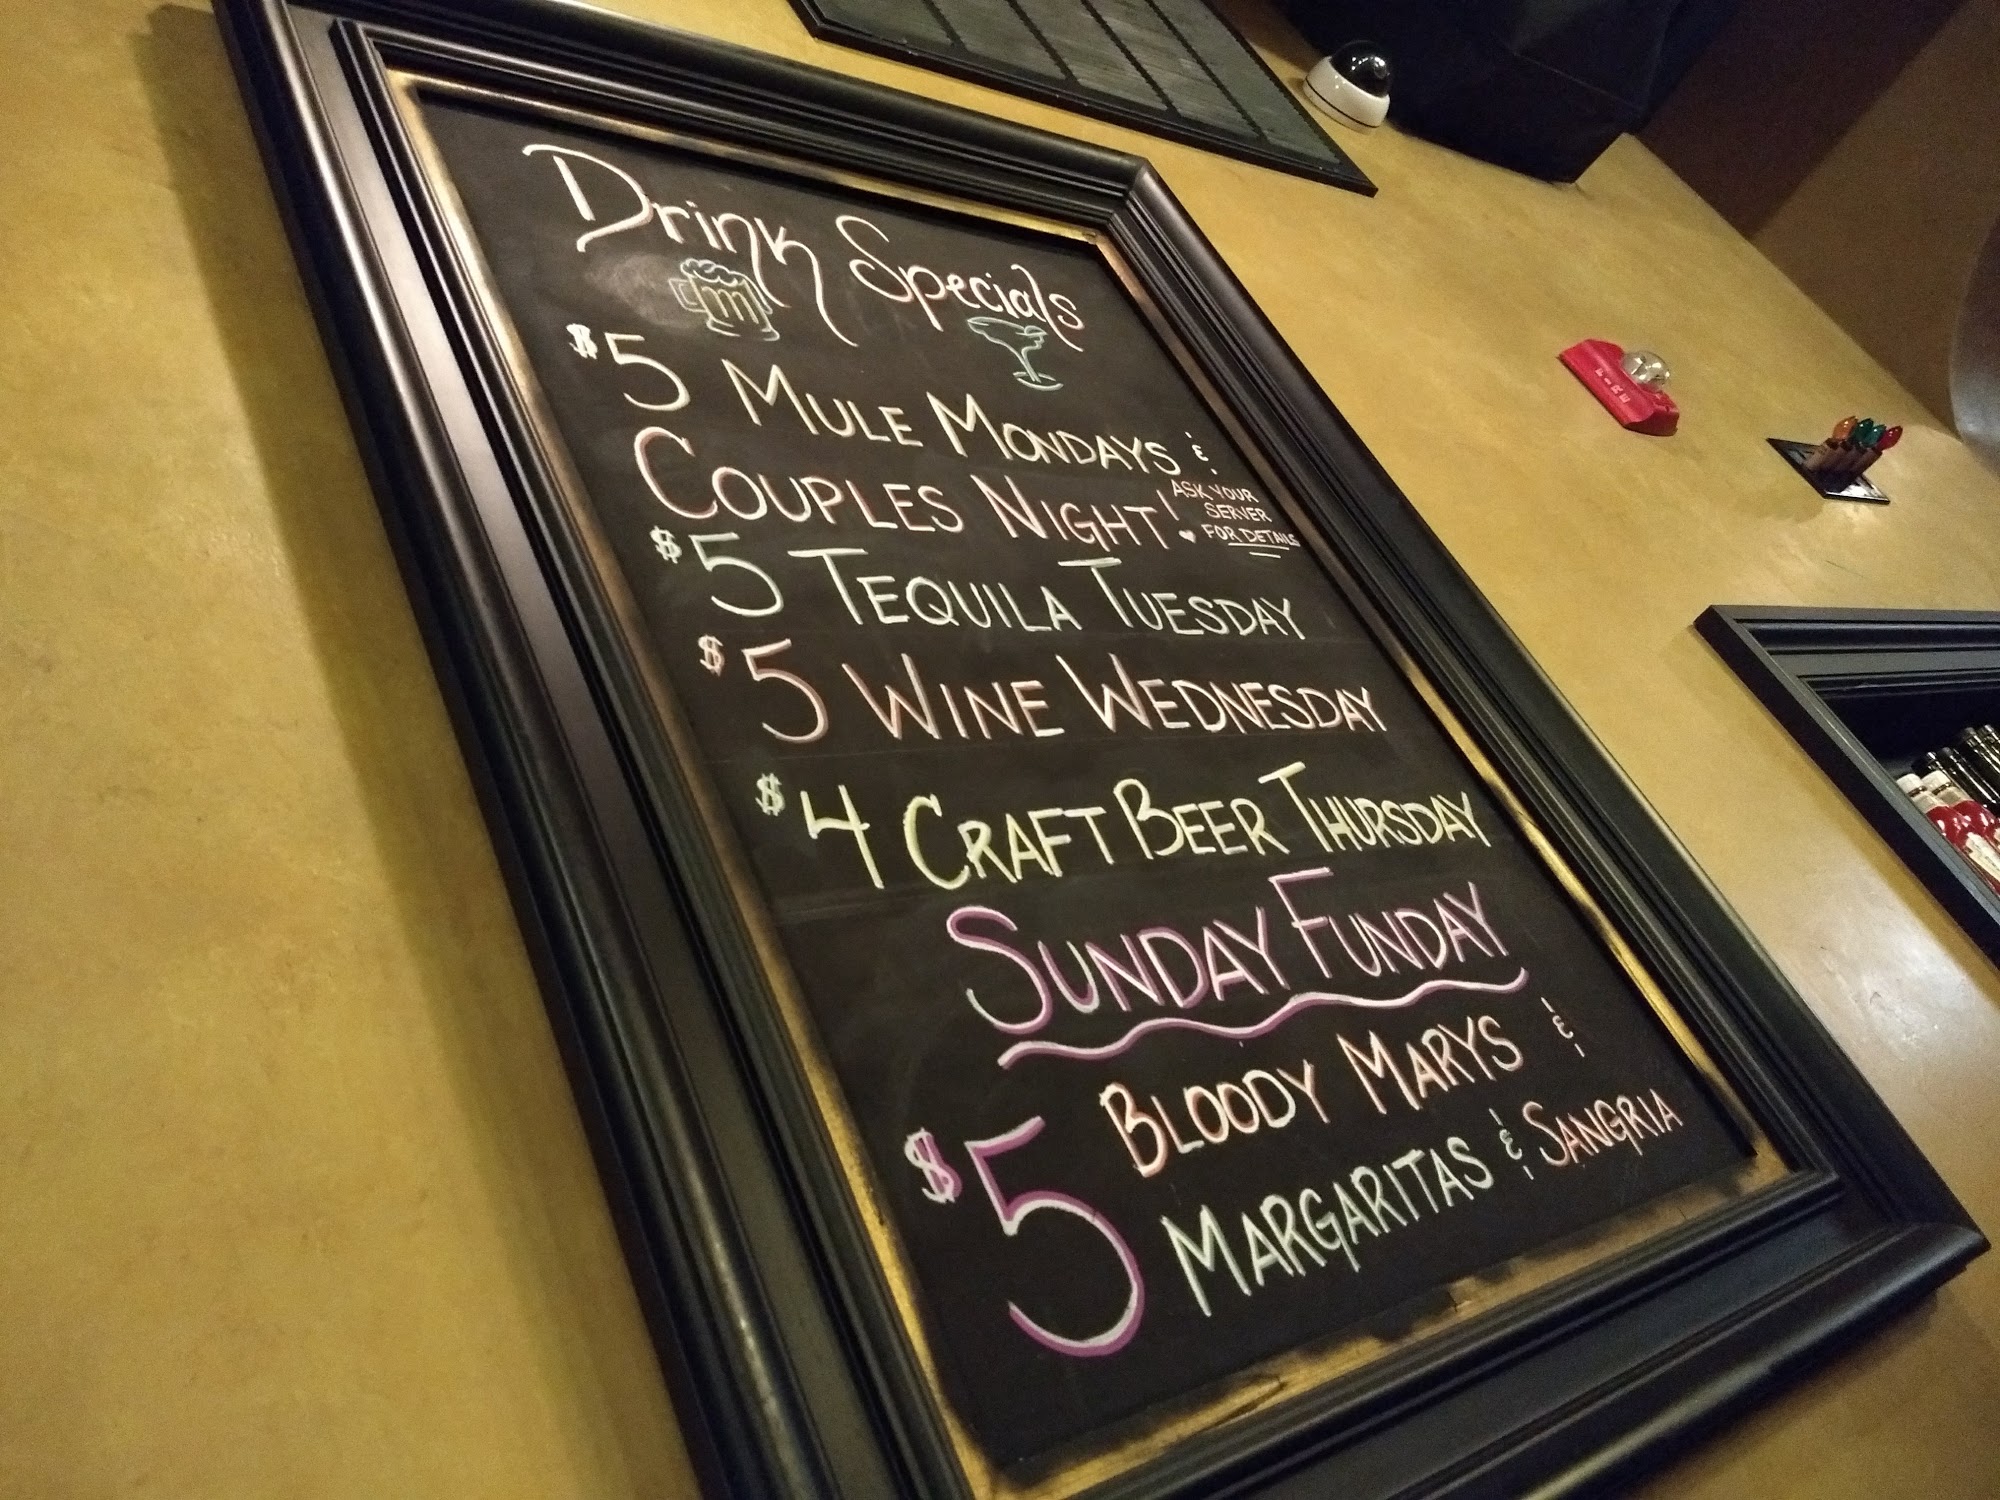 Drink Specials
$5 MULE MONDAYS &
COUPLES NIGHT!
ASK YOUR
SERVER
FOR DETAILS
$5 TEQUILA TUESDAY
$5 WINE WEDNESDAY
$4 CRAFT BEER THURSDAY
SUNDAY FUNDAY
$5 BLOODY MARYS &
MARGARITAS & SANGRIA
FIRE